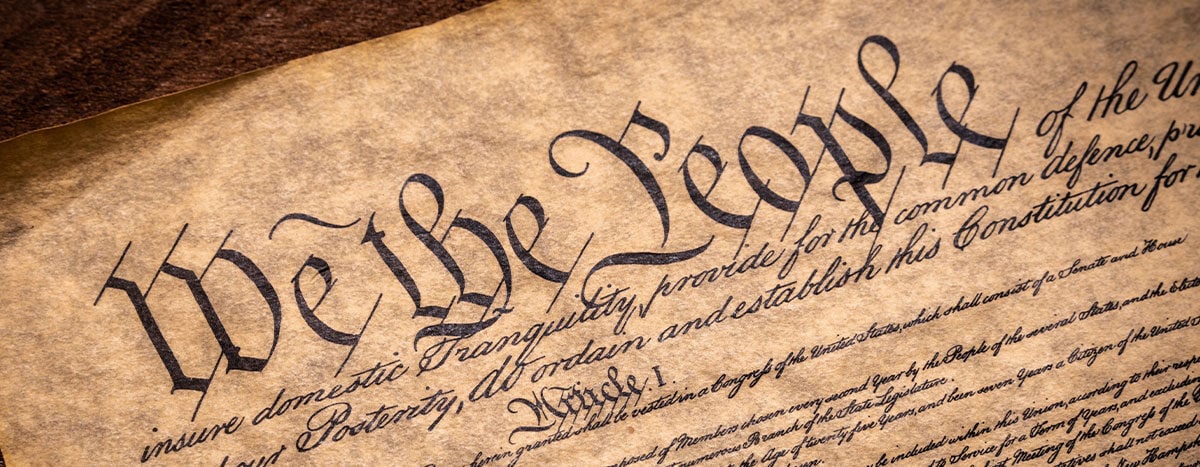 We the People of the Un
insure domestic Tranquility, provide for the common defence, pr
our Posterity, do ordain and establish this Constitution for
Article I.
herein granted shall be vested in a Congress of the United States, which shall consist of a Senate and Hous
posed of Members chosen every second Year by the People of the several States, and the Elect
numerous Branch of the State Legislature.
the Age of twenty five Years, and been seven Years a Citizen of the United
be included within this Union, according to their respec
to Service for a Term of Years, and excluding
Meeting of the Congress of the
tatives shall not exceed
Hamp